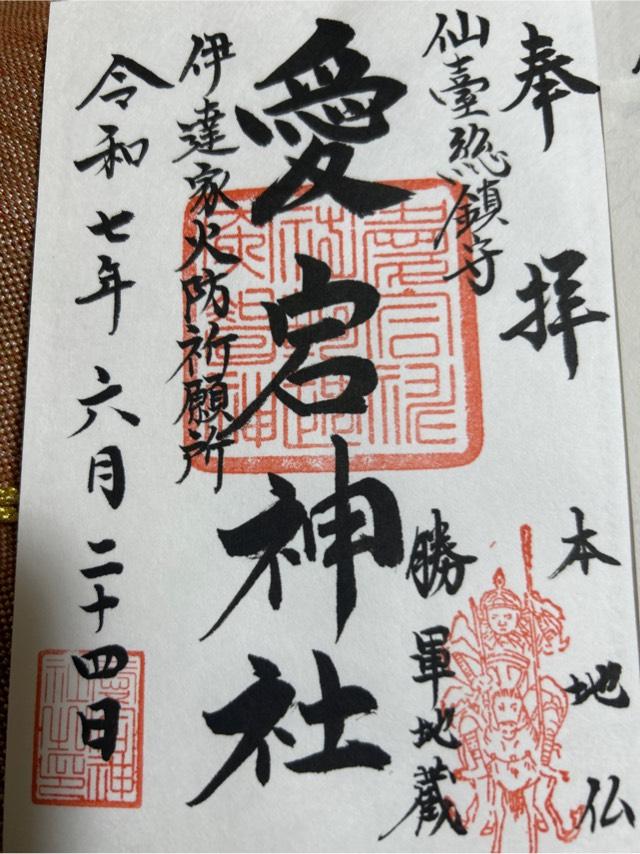 奉拝
本地仏
仙臺総鎮守
勝軍地蔵
愛宕神社
伊達家火防祈願所
令和七年六月二十四日